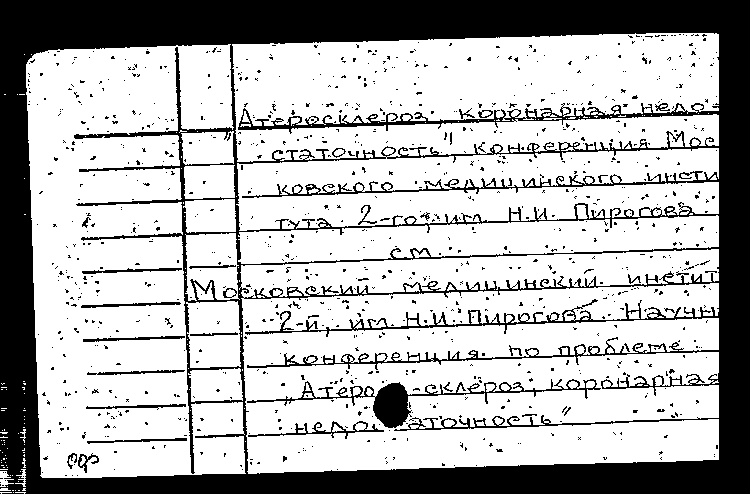 „Атеросклероз, коронарная недо-
статочность", конференция Мос
ковского медицинского инсти
тута, 2-го, им. Н.И. Пирогова
см.
Московский медицинский инстит
2-й, им. Н.И. Пирогова. Научн
конференция по проблеме:
„Атеро-склероз, коронарная
недостаточность"